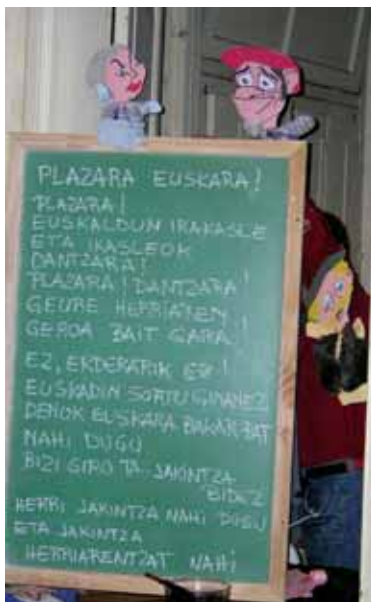 PLAZARA EUSKARA!
PLAZARA!
EUSKALDUN IRAKASLE
ETA IKASLEOK
DANTZARA!
PLAZARA! DANTZARA!
GEURE HERRIAREN
GEROA BAIT GARA!
EZ, ERDERARIK EZ!
EUSKADIN SORTU GINANEZ
DENOK EUSKARA BAKAR BAT
NAHI DUGU
BIZI GIRO TA JAKINTZA
BIDEZ
HERRI JAKINTZA NAHI DUGU
ETA JAKINTZA
HERRIARENTZAT NAHI